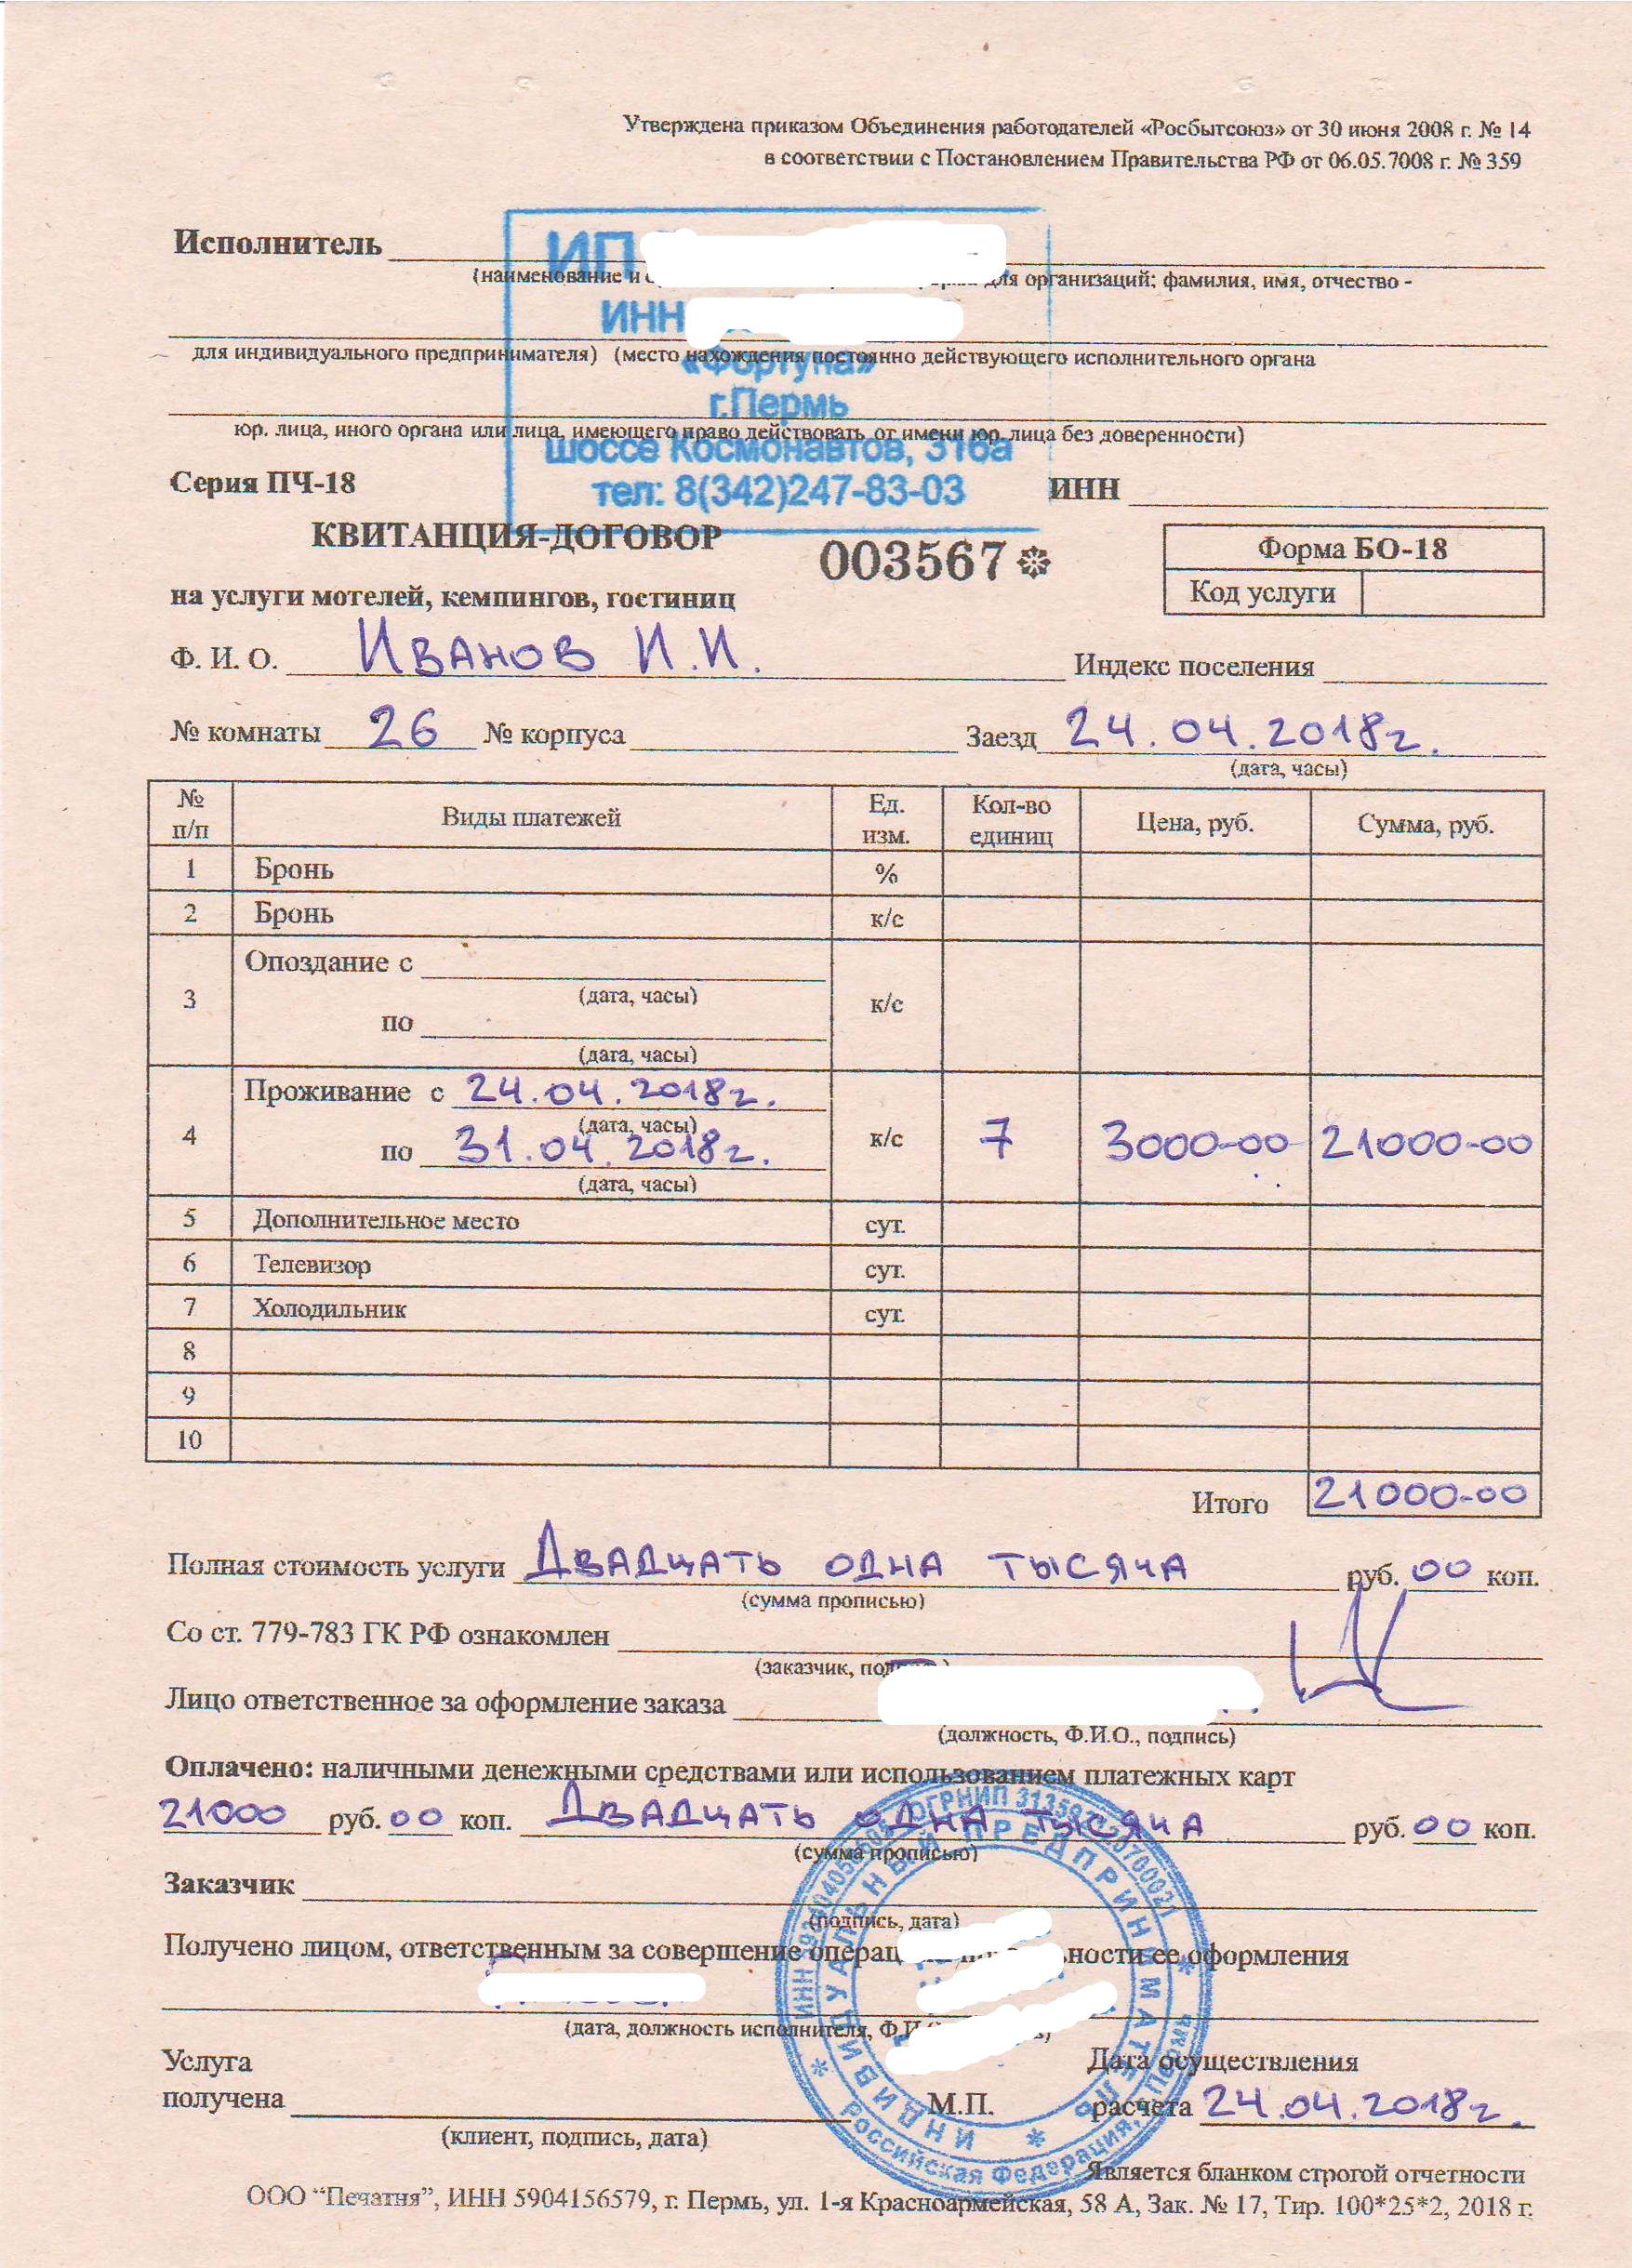 Утверждена приказом Объединения работодателей «Росбытсоюз» от 30 июня 2008 г. № 14
в соответствии с Постановлением Правительства РФ от 06.05.7008 г. № 359
Исполнитель ИП
(наименование и для организаций; фамилия, имя, отчество -
ИНН
для индивидуального предпринимателя) (место нахождения постоянно действующего исполнительного органа
«Фортуна»
г.Пермь
юр. лица, иного органа или лица, имеющего право действовать от имени юр. лица без доверенности)
шоссе Космонавтов, 316а
Серия ПЧ-18 тел: 8(342)247-83-03 ИНН
КВИТАНЦИЯ-ДОГОВОР 003567
Форма БО-18
на услуги мотелей, кемпингов, гостиниц Код услуги
Ф. И. О. Иванов И.И. Индекс поселения
№ комнаты 26 № корпуса Заезд 24.04.2018г.
(дата, часы)
№ п/п Виды платежей Ед. изм. Кол-во единиц Цена, руб. Сумма, руб.
1 Бронь %
2 Бронь к/с
3 Опоздание с к/с
(дата, часы)
по
(дата, часы)
4 Проживание с 24.04.2018г. к/с 7 3000-00 21000-00
(дата, часы)
по 31.04.2018г.
(дата, часы)
5 Дополнительное место сут.
6 Телевизор сут.
7 Холодильник сут.
8
9
10
Итого 21000-00
Полная стоимость услуги Двадцать одна тысяча руб. 00 коп.
(сумма прописью)
Со ст. 779-783 ГК РФ ознакомлен
(заказчик,
Лицо ответственное за оформление заказа
(должность, Ф.И.О., подпись)
Оплачено: наличными денежными средствами или использованием платежных карт
21000 руб. 00 коп. Двадцать одна тысяча руб. 00 коп.
(сумма прописью)
Заказчик
(подпись, дата)
Получено лицом, ответственным за совершение оформления
(дата, должность исполнителя,
ИНДИВИДУАЛЬНЫЙ ПРЕДПРИНИМАТЕЛЬ
Российская Федерация,
Услуга
получена
(клиент, подпись, дата)
М.П.
Дата осуществления
расчета 24.04.2018г.
Является бланком строгой отчетности
ООО “Печатня”, ИНН 5904156579, г. Пермь, ул. 1-я Красноармейская, 58 А, Зак. № 17, Тир. 100*25*2, 2018 г.